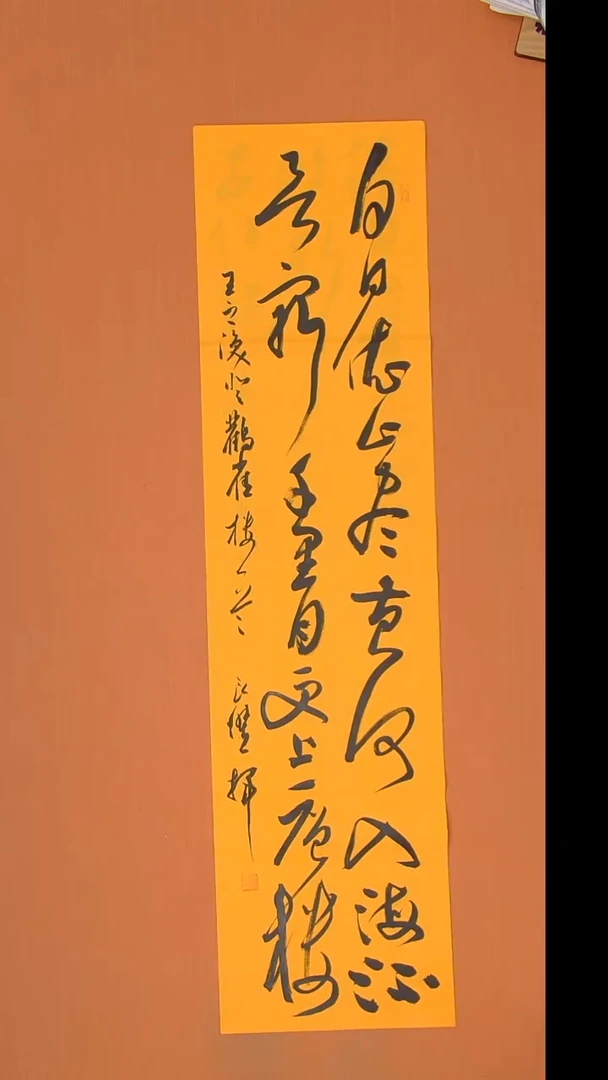 白日依山尽黄河入海流
欲窮千里目更上一层楼
王之渙登鸛雀楼一首
揮